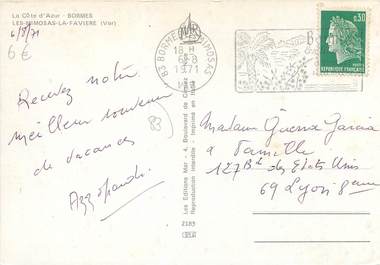 La Côte d'Azur - BORMES
LES-MIMOSAS-LA-FAVIÈRE (Var)
6/8/71
6€
83 BORMES
18 H
6-8
1971
0,30
REPUBLIQUE FRANÇAISE
Recevez notre
meilleur souvenir
de vacances
83
Les Editions Mar
Boulevard de
Reproduction Interdite - Imprimé en Italie
2183
Madame Guerra Garcia
&
Famille
127 Bd des Etats Unis
69 Lyon 8eme